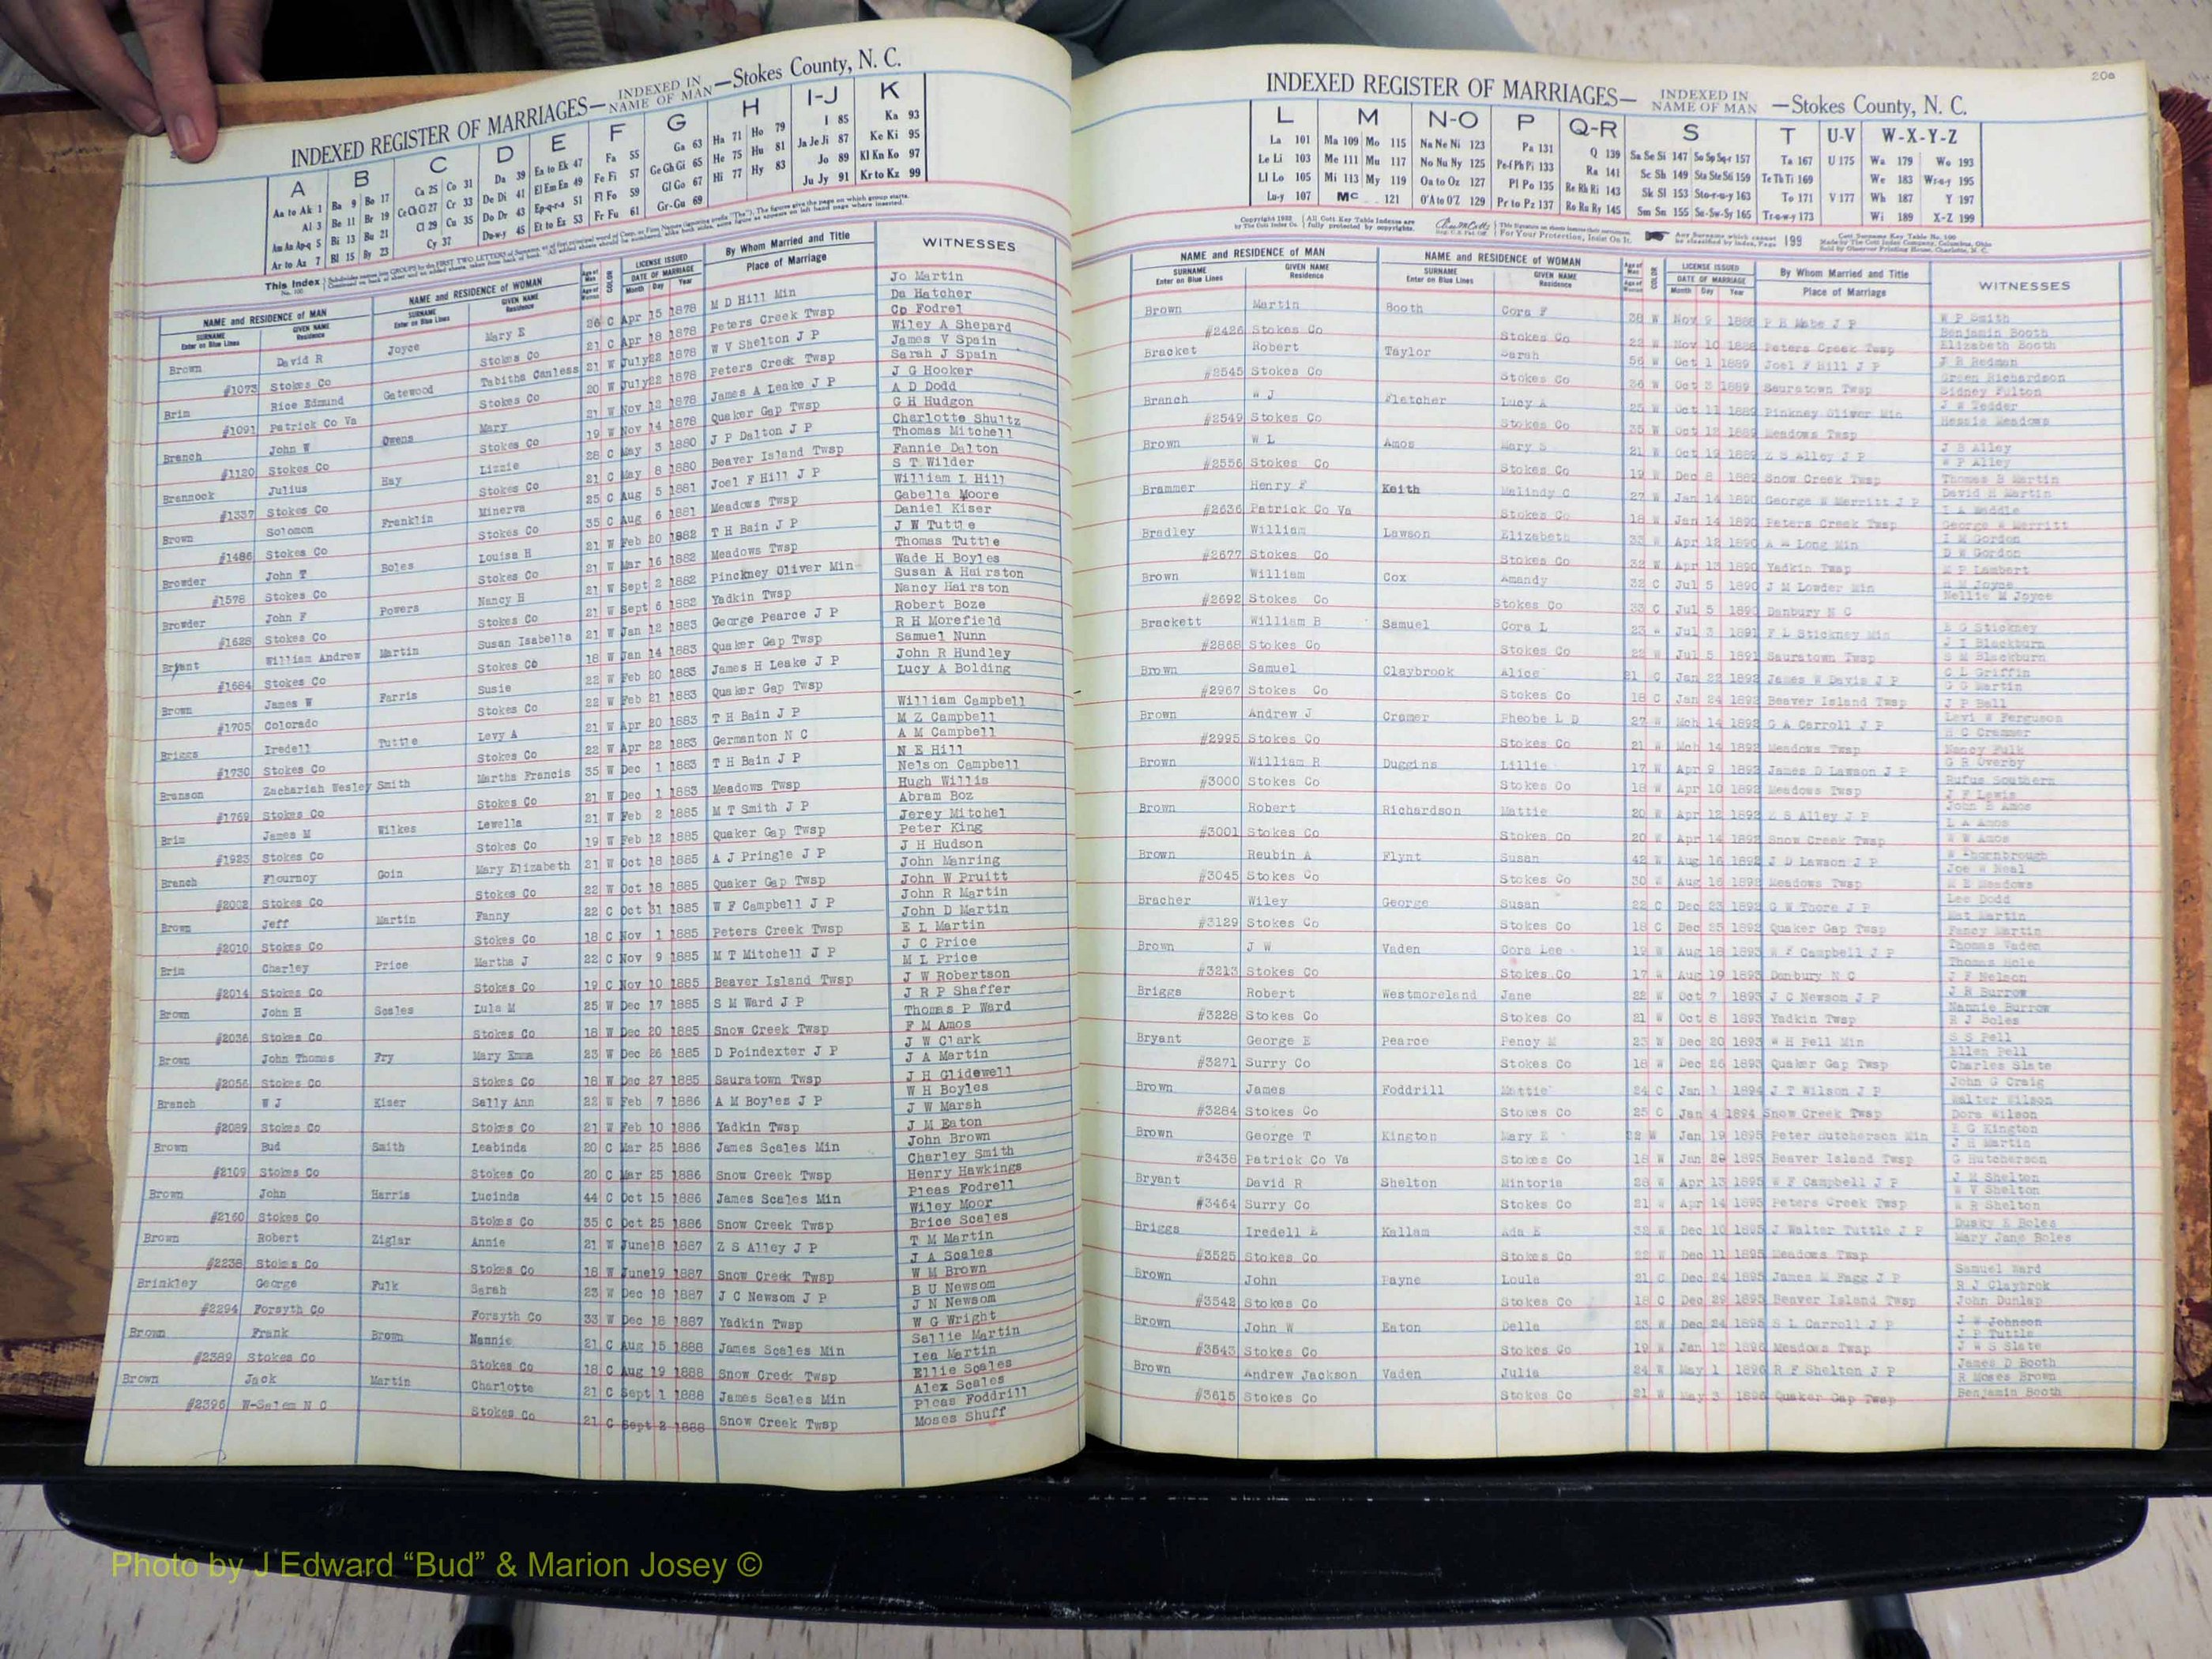 INDEXED REGISTER OF MARRIAGES— INDEXED IN NAME OF MAN —Stokes County, N. C.
A B C D E F G H I-J K
Aa to Ak 1 Ba 9 Bo 17 Ca 25 Co 31 Da 39 Ea to Ek 47 Fa 55 Ga 63 Ha 71 Ho 79 I 85 Ka 93
Al 3 Be 11 Br 19 Ce Ch Ci 27 Cr 33 De Di 41 El Em En 49 Fe Fi 57 Ge Gh Gi 65 He 75 Hu 81 Ja Je Ji 87 Ke Ki 95
Am An Ap-q 5 Bi 13 Bu 21 Cl 29 Cu 35 Do Dr 43 Ep-q-r-s 51 Fl Fo 59 Gl Go 67 Hi 77 Hy 83 Jo 89 Kl Kn Ko 97
Ar to Az 7 Bl 15 By 23 Cy 37 Du-w-y 45 Et to Ez 53 Fr Fu 61 Gr-Gu 69 Ju Jy 91 Kr to Kz 99
NAME and RESIDENCE OF MAN NAME and RESIDENCE OF WOMAN LICENSE ISSUED By Whom Married and Title WITNESSES
SURNAME Enter on Blue Lines GIVEN NAME Residence SURNAME Enter on Blue Lines GIVEN NAME Residence DATE OF MARRIAGE Month Day Year Place of Marriage
Brown David R Joyce Mary E 26 C Apr 15 1878 M D Hill Min Jo Martin
Da Hatcher
#1073 Stokes Co Stokes Co 21 C Apr 18 1878 Peters Creek Twsp Cp Fodrel
Brim Rice Edmund Gatewood Tabitha Canless 21 W July 22 1878 W V Shelton J P Wiley A Shepard
James V Spain
#1091 Patrick Co Va Stokes Co 20 W July 22 1878 Peters Creek Twsp Sarah J Spain
Branch John W Owens Mary 21 W Nov 12 1878 James A Leake J P J G Hooker
A D Dodd
#1120 Stokes Co Stokes Co 19 W Nov 14 1878 Quaker Gap Twsp G H Hudgon
Brannock Julius Hay Lizzie 28 C May 3 1880 J P Dalton J P Charlotte Shultz
Thomas Mitchell
#1337 Stokes Co Stokes Co 21 C May 8 1880 Beaver Island Twsp Fannie Dalton
Brown Solomon Franklin Minerva 25 C Aug 5 1881 Joel F Hill J P S T Wilder
William L Hill
#1486 Stokes Co Stokes Co 35 C Aug 6 1881 Meadows Twsp Gabella Moore
Browder John T Boles Louisa H 21 W Feb 20 1882 T H Bain J P Daniel Kiser
J W Tuttle
#1578 Stokes Co Stokes Co 21 W Mar 16 1882 Meadows Twsp Thomas Tuttle
Browder John F Powers Nancy H 21 W Sept 2 1882 Pinckney Oliver Min Wade H Boyles
Susan A Hairston
#1628 Stokes Co Stokes Co 21 W Sept 6 1882 Yadkin Twsp Nancy Hairston
Bryant William Andrew Martin Susan Isabella 21 W Jan 12 1883 George Pearce J P Robert Boze
R H Morefield
#1684 Stokes Co Stokes Co 18 W Jan 14 1883 Quaker Gap Twsp Samuel Nunn
Brown James W Farris Susie 22 W Feb 20 1883 James H Leake J P John R Hundley
Lucy A Bolding
#1705 Colorado Stokes Co 22 W Feb 21 1883 Quaker Gap Twsp
Briggs Iredell Tuttle Levy A 21 W Apr 20 1883 T H Bain J P William Campbell
M Z Campbell
#1730 Stokes Co Stokes Co 22 W Apr 22 1883 Germanton N C A M Campbell
Branson Zachariah Wesley Smith Martha Francis 35 W Dec 1 1883 T H Bain J P N E Hill
Nelson Campbell
#1769 Stokes Co Stokes Co 21 W Dec 1 1883 Meadows Twsp Hugh Willis
Brim James M Wilkes Lewella 21 W Feb 2 1885 M T Smith J P Abram Boz
Jerey Mitchel
#1923 Stokes Co Stokes Co 19 W Feb 12 1885 Quaker Gap Twsp Peter King
Branch Flournoy Goin Mary Elizabeth 21 W Oct 18 1885 A J Pringle J P J H Hudson
John Manring
#2002 Stokes Co Stokes Co 22 W Oct 18 1885 Quaker Gap Twsp John W Pruitt
Brown Jeff Martin Fanny 22 C Oct 31 1885 W F Campbell J P John R Martin
John D Martin
#2010 Stokes Co Stokes Co 18 C Nov 1 1885 Peters Creek Twsp E L Martin
Brim Charley Price Martha J 22 C Nov 9 1885 M T Mitchell J P J C Price
M L Price
#2014 Stokes Co Stokes Co 19 C Nov 10 1885 Beaver Island Twsp J W Robertson
Brown John H Scales Lula M 25 W Dec 17 1885 S M Ward J P J R P Shaffer
Thomas P Ward
#2036 Stokes Co Stokes Co 18 W Dec 20 1885 Snow Creek Twsp F M Amos
Brown John Thomas Fry Mary Emma 23 W Dec 26 1885 D Poindexter J P J W Clark
J A Martin
#2056 Stokes Co Stokes Co 18 W Dec 27 1885 Sauratown Twsp J H Glidewell
Branch W J Kiser Sally Ann 22 W Feb 7 1886 A M Boyles J P W H Boyles
J W Marsh
#2089 Stokes Co Stokes Co 21 W Feb 10 1886 Yadkin Twsp J M Eaton
Brown Bud Smith Leabinda 20 C Mar 25 1886 James Scales Min John Brown
Charley Smith
#2109 Stokes Co Stokes Co 20 C Mar 25 1886 Snow Creek Twsp Henry Hawkings
Brown John Harris Lucinda 44 C Oct 15 1886 James Scales Min Pleas Fodrell
Wiley Moor
#2160 Stokes Co Stokes Co 35 C Oct 25 1886 Snow Creek Twsp Brice Scales
Brown Robert Ziglar Annie 21 W June 18 1887 Z S Alley J P T M Martin
J A Scales
#2238 Stokes Co Stokes Co 18 W June 19 1887 Snow Creek Twsp W M Brown
Brinkley George Fulk Sarah 23 W Dec 18 1887 J C Newsom J P B U Newsom
J N Newsom
#2294 Forsyth Co Forsyth Co 33 W Dec 18 1887 Yadkin Twsp W G Wright
Brown Frank Brown Nannie 21 C Aug 15 1888 James Scales Min Sallie Martin
Lea Martin
#2389 Stokes Co Stokes Co 18 C Aug 19 1888 Snow Creek Twsp Ellie Scales
Brown Jack Martin Charlotte 21 C Sept 1 1888 James Scales Min Alex Scales
Pleas Foddrill
#2396 W-Salem N C Stokes Co 21 C Sept 2 1888 Snow Creek Twsp Moses Shuff
20a
INDEXED REGISTER OF MARRIAGES— INDEXED IN NAME OF MAN —Stokes County, N. C.
L M N-O P Q-R S T U-V W-X-Y-Z
La 101 Ma 109 Mo 115 Na Ne Ni 123 Pa 131 Q 139 Sa Se Si 147 So Sp Sq-r 157 Ta 167 U 175 Wa 179 Wo 193
Le Li 103 Me 111 Mu 117 No Nu Ny 125 Pe-f Ph Pi 133 Ra 141 Sc Sh 149 Sta Ste Sti 159 Te Th Ti 169 We 183 Wr-u-y 195
Ll Lo 105 Mi 113 My 119 Oa to Oz 127 Pl Po 135 Re Rh Ri 143 Sk Sl 153 Sto-r-u-y 163 To 171 V 177 Wh 187 Y 197
Lu-y 107 Mc 121 O'A to O'Z 129 Pr to Pz 137 Ro Ru Ry 145 Sm Sn 155 Su-Sw-Sy 165 Tr-u-w-y 173 Wi 189 X-Z 199
NAME and RESIDENCE OF MAN NAME and RESIDENCE OF WOMAN LICENSE ISSUED By Whom Married and Title WITNESSES
SURNAME Enter on Blue Lines GIVEN NAME Residence SURNAME Enter on Blue Lines GIVEN NAME Residence DATE OF MARRIAGE Month Day Year Place of Marriage
Brown Martin Booth Cora F 28 W Nov 9 1888 P H Mabe J P W P Smith
Benjamin Booth
#2426 Stokes Co Stokes Co 22 W Nov 10 1888 Peters Creek Twsp Elizabeth Booth
Bracket Robert Taylor Sarah 56 W Oct 1 1889 Joel F Hill J P J R Redman
Green Richardson
#2545 Stokes Co Stokes Co 36 W Oct 3 1889 Sauratown Twsp Sidney Fulton
Branch W J Fletcher Lucy A 25 W Oct 11 1889 Pinkney Oliver Min J W Tedder
Hessie Meadows
#2549 Stokes Co Stokes Co 35 W Oct 12 1889 Meadows Twsp
Brown W L Amos Mary S 21 W Oct 19 1889 Z S Alley J P J B Alley
W P Alley
#2556 Stokes Co Stokes Co 19 W Dec 8 1889 Snow Creek Twsp Thomas B Martin
Brammer Henry F Keith Malindy C 27 W Jan 14 1890 George W Merritt J P David H Martin
#2636 Patrick Co Va Stokes Co 18 W Jan 14 1890 Peters Creek Twsp George W Merritt
Bradley William Lawson Elizabeth 33 W Apr 12 1890 A W Long Min I M Gordon
D W Gordon
#2677 Stokes Co Stokes Co 32 W Apr 13 1890 Yadkin Twsp M P Lambert
Brown William Cox Amandy 32 C Jul 5 1890 J M Lowder Min
Nellie M Joyce
#2692 Stokes Co Stokes Co 33 C Jul 5 1890 Danbury N C
Brackett William B Samuel Cora L 23 Jul 3 1891 F L Stickney Min B G Stickney
J I Blackburn
#2868 Stokes Co Stokes Co 22 W Jul 5 1891 Sauratown Twsp S M Blackburn
Brown Samuel Claybrook Alice 21 C Jan 22 1892 James W Davis J P C L Griffin
G G Martin
#2967 Stokes Co Stokes Co 18 C Jan 24 1892 Beaver Island Twsp J P Ball
Brown Andrew J Cromer Pheobe L D 27 W Mch 14 1892 G A Carroll J P Levi W Ferguson
H C Crammer
#2995 Stokes Co Stokes Co 21 W Mch 14 1892 Meadows Twsp Nancy Fulk
Brown William R Duggins Lillie 17 W Apr 9 1892 James D Lawson J P G R Overby
Rufus Southern
#3000 Stokes Co Stokes Co 18 W Apr 10 1892 Meadows Twsp J F Lewis
Brown Robert Richardson Mattie 20 W Apr 12 1892 Z S Alley J P John B Amos
L A Amos
#3001 Stokes Co Stokes Co 20 W Apr 14 1892 Snow Creek Twsp W W Amos
Brown Reubin A Flynt Susan 42 W Aug 16 1892 J D Lawson J P
Joe W Neal
#3045 Stokes Co Stokes Co 30 W Aug 16 1892 Meadows Twsp M E Meadows
Bracher Wiley George Susan 22 C Dec 23 1892 G W Thore J P Lee Dodd
Mat Martin
#3129 Stokes Co Stokes Co 18 C Dec 25 1892 Quaker Gap Twsp Fancy Martin
Brown J W Vaden Cora Lee 19 W Aug 18 1893 W F Campbell J P Thomas Vaden
Thomas Hole
#3213 Stokes Co Stokes Co 17 W Aug 19 1893 Danbury N C J F Nelson
Briggs Robert Westmoreland Jane 22 W Oct 7 1893 J C Newsom J P J H Burrow
Nannie Burrow
#3228 Stokes Co Stokes Co 21 W Oct 8 1893 Yadkin Twsp R J Boles
Bryant George E Pearce Pency M 23 W Dec 20 1893 W H Pell Min S S Pell
Ellen Pell
#3271 Surry Co Stokes Co 18 W Dec 26 1893 Quaker Gap Twsp Charles Slate
Brown James Foddrill Mattie 24 C Jan 1 1894 J T Wilson J P John G Craig
Walter Wilson
#3284 Stokes Co Stokes Co 25 C Jan 4 1894 Snow Creek Twsp Dora Wilson
Brown George T Kington Mary E 22 W Jan 19 1895 Peter Hutcherson Min E G Kington
J H Martin
#3438 Patrick Co Va Stokes Co 18 W Jan 20 1895 Beaver Island Twsp G Hutcherson
Bryant David R Shelton Mintoria 28 W Apr 13 1895 W F Campbell J P J M Shelton
W V Shelton
#3464 Surry Co Stokes Co 21 W Apr 14 1895 Peters Creek Twsp W R Shelton
Briggs Iredell E Kallam Ada E 32 W Dec 10 1895 J Walter Tuttle J P Dusky E Boles
Mary Jane Boles
#3525 Stokes Co Stokes Co 22 W Dec 11 1895 Meadows Twsp
Brown John Payne Loula 21 C Dec 24 1895 James M Fagg J P Samuel Ward
R J Claybrok
#3542 Stokes Co Stokes Co 18 C Dec 29 1895 Beaver Island Twsp John Dunlap
Brown John W Eaton Della 23 W Dec 24 1895 S L Carroll J P J W Johnson
J P Tuttle
#3543 Stokes Co Stokes Co 19 W Jan 12 1896 Meadows Twsp J W S Slate
Brown Andrew Jackson Vaden Julia 24 W May 1 1896 R F Shelton J P James D Booth
R Moses Brown
#3615 Stokes Co Stokes Co 21 W May 3 1896 Quaker Gap Twsp Benjamin Booth
Photo by J Edward “Bud” & Marion Josey ©